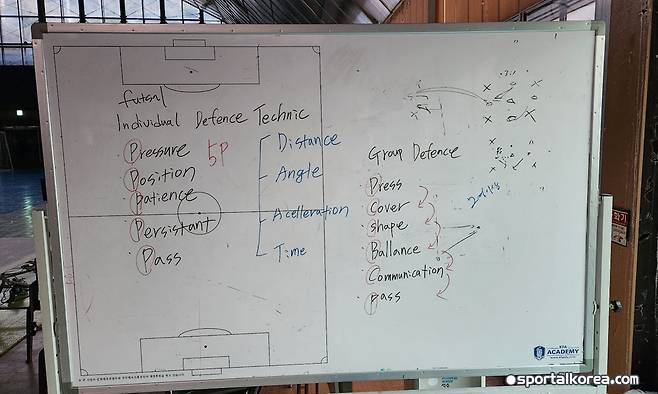 futsal
Individual Defence Technic
· Pressure
5P
· Position
· Patience
· Persistant
· Pass
Distance
Angle
Acelleration
Time
Group Defence
· Press
· Cover
· shape
· Ballance
· Communication
· pass
KFA
ACADEMY
sportalkorea.com